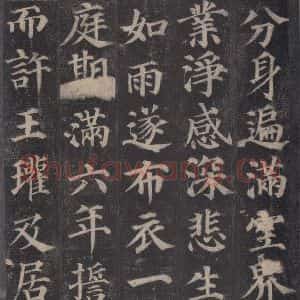 分身遍滿空界
業淨感深悲生
如雨遂布衣一
庭期滿六年誓
而許王瓘及居
shufawang.cn